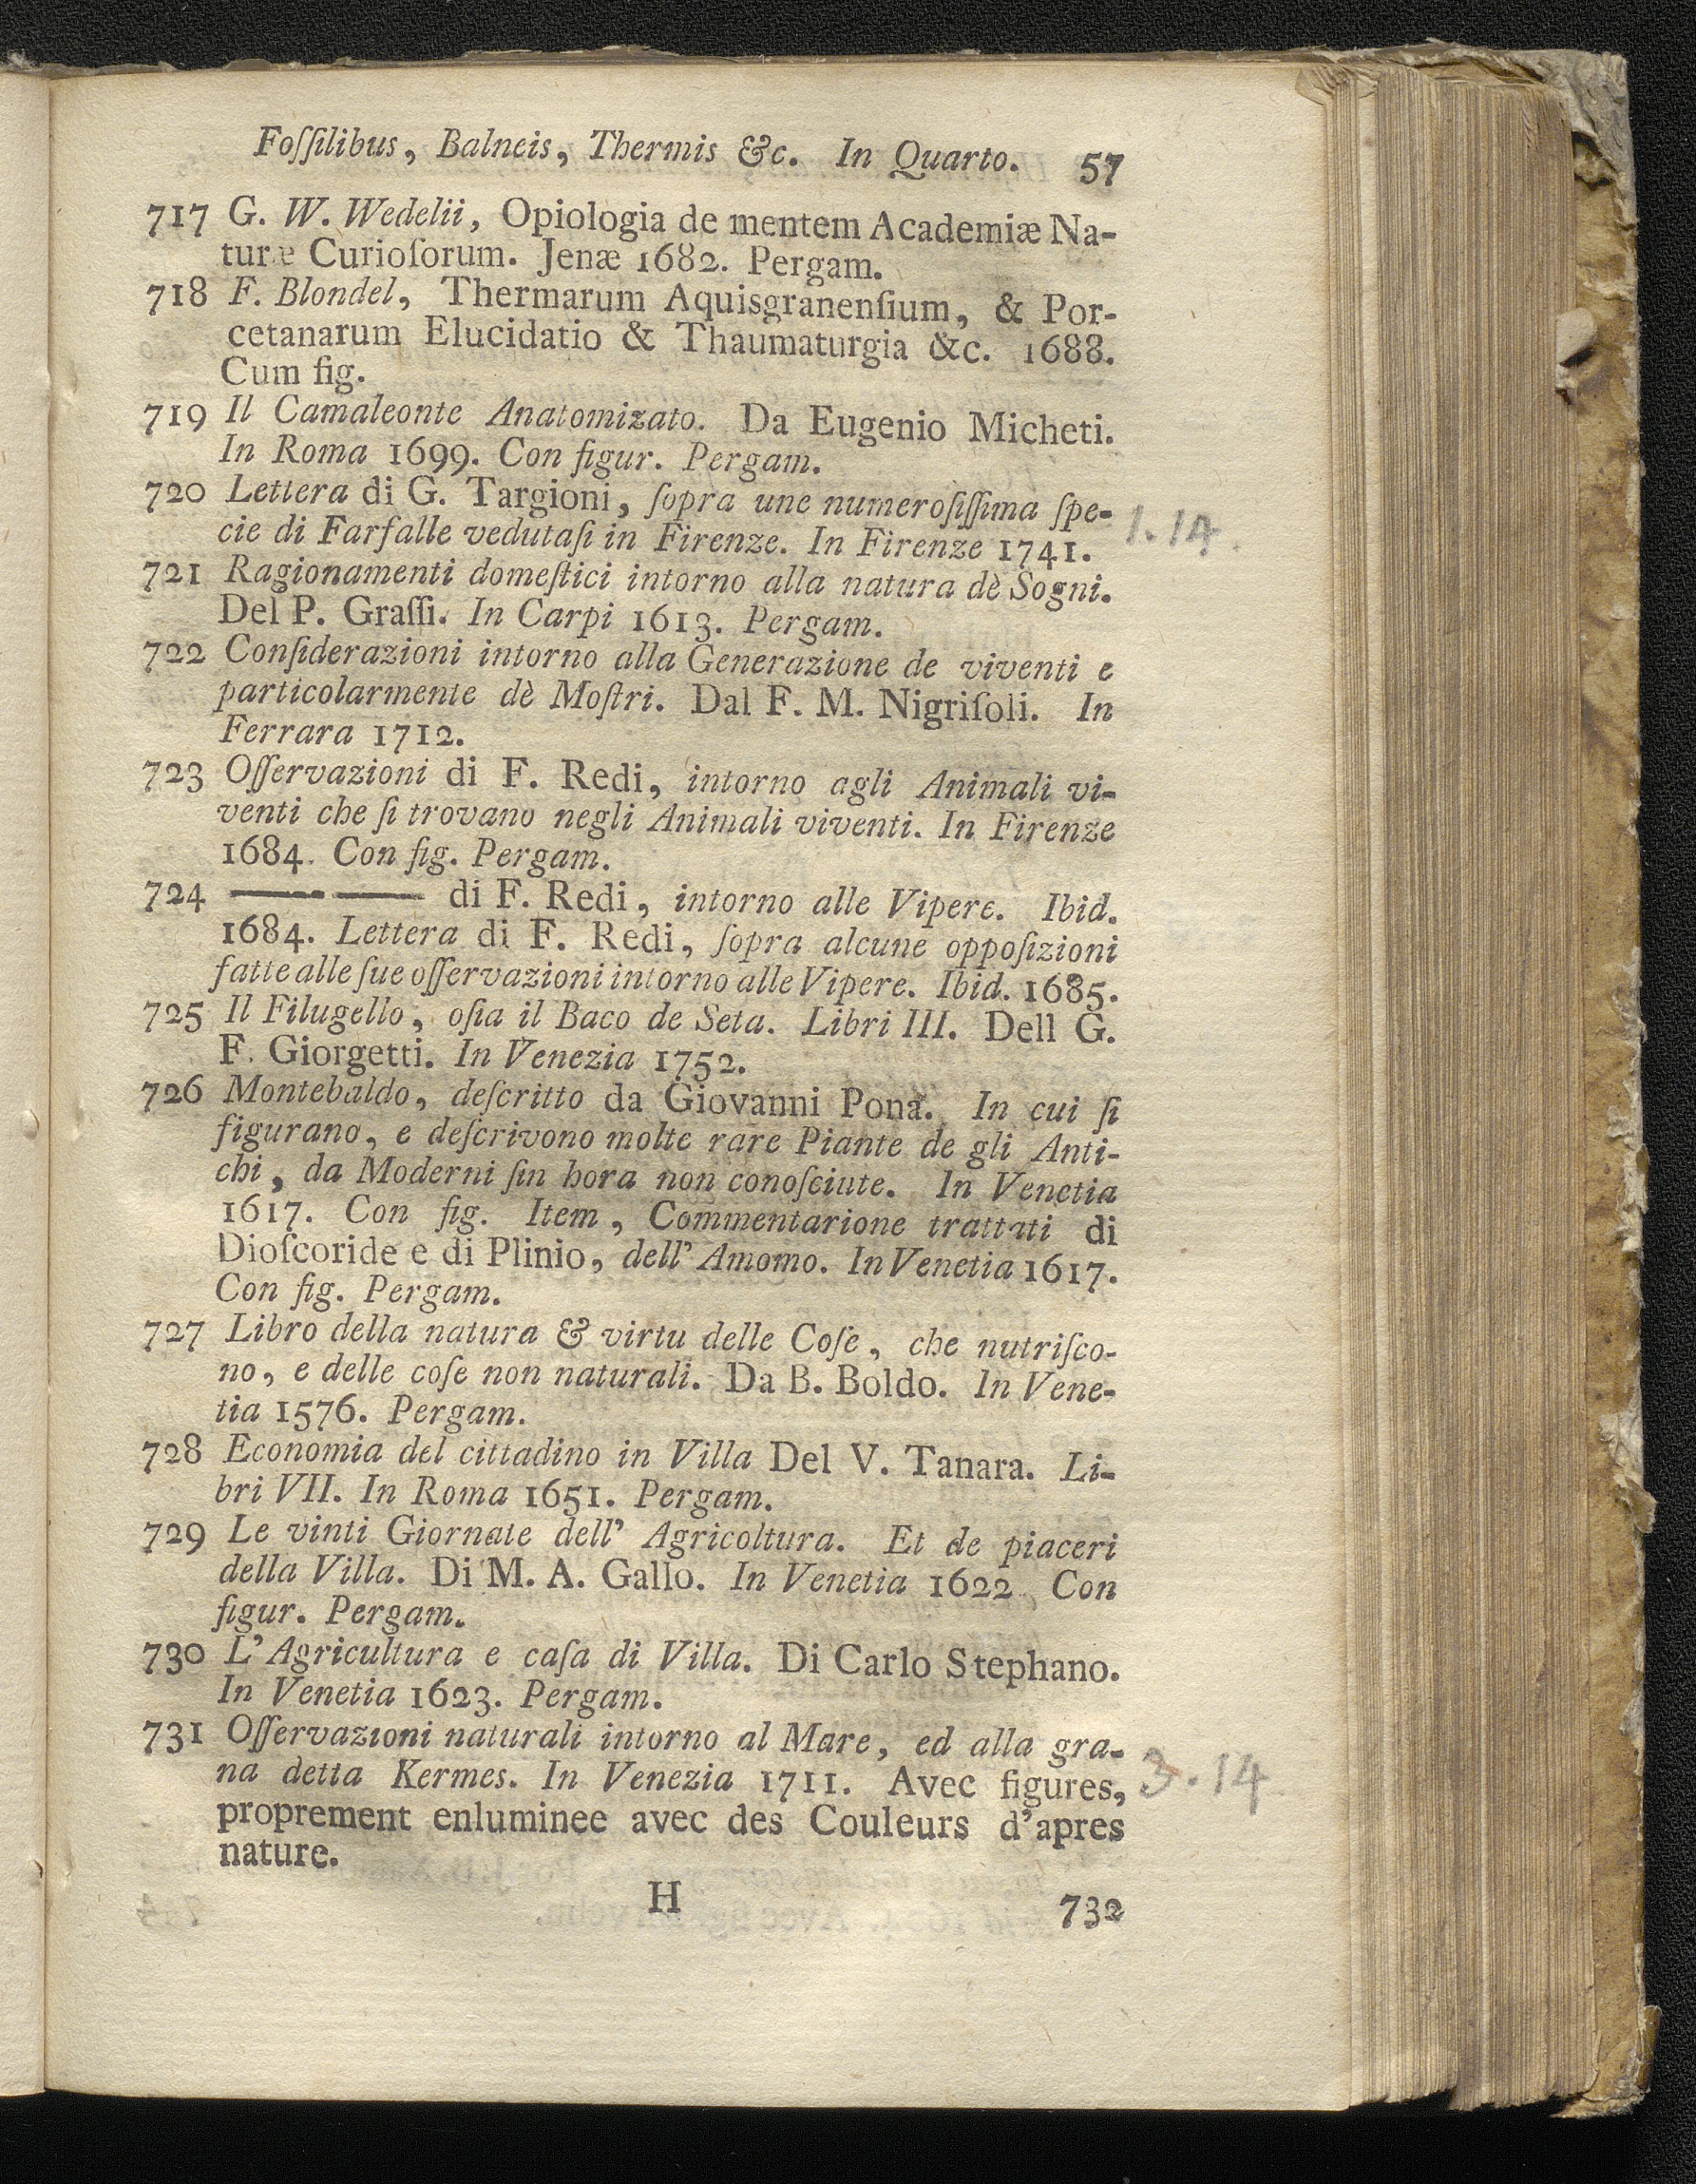 Foſſilibus, Balneis, Thermis &c. In Quarto. 57
717 G. W. Wedelii, Opiologia de mentem Academiæ Na-
turæ Curioſorum. Jenæ 1682. Pergam.
718 F. Blondel, Thermarum Aquisgranenſium, & Por-
cetanarum Elucidatio & Thaumaturgia &c. 1688.
Cum fig.
719 Il Camaleonte Anatomizato. Da Eugenio Micheti.
In Roma 1699. Con figur. Pergam.
720 Lettera di G. Targioni, ſopra une numeroſiſſima ſpe-
cie di Farfalle vedutaſi in Firenze. In Firenze 1741. 1.14.
721 Ragionamenti domeſtici intorno alla natura dè Sogni.
Del P. Graſſi. In Carpi 1613. Pergam.
722 Conſiderazioni intorno alla Generazione de viventi e
particolarmente dè Moſtri. Dal F. M. Nigriſoli. In
Ferrara 1712.
723 Oſſervazioni di F. Redi, intorno agli Animali vi-
venti che ſi trovano negli Animali viventi. In Firenze
1684. Con fig. Pergam.
724 —— —— di F. Redi, intorno alle Vipere. Ibid.
1684. Lettera di F. Redi, ſopra alcune oppoſizioni
fatte alle ſue oſſervazioni intorno alle Vipere. Ibid. 1685.
725 Il Filugello, oſia il Baco de Seta. Libri III. Dell G.
F. Giorgetti. In Venezia 1752.
726 Montebaldo, deſcritto da Giovanni Pona. In cui ſi
figurano, e deſcrivono molte rare Piante de gli Anti-
chi, da Moderni ſin hora non conoſciute. In Venetia
1617. Con fig. Item, Commentarione trattati di
Dioſcoride e di Plinio, dell' Amomo. In Venetia 1617.
Con fig. Pergam.
727 Libro della natura & virtu delle Coſe, che nutriſco-
no, e delle coſe non naturali. Da B. Boldo. In Vene-
tia 1576. Pergam.
728 Economia del cittadino in Villa Del V. Tanara. Li-
bri VII. In Roma 1651. Pergam.
729 Le vinti Giornate dell' Agricoltura. Et de piaceri
della Villa. Di M. A. Gallo. In Venetia 1622. Con
figur. Pergam.
730 L' Agricultura e caſa di Villa. Di Carlo Stephano.
In Venetia 1623. Pergam.
731 Oſſervazioni naturali intorno al Mare, ed alla gra-
na detta Kermes. In Venezia 1711. Avec figures, 3.14
proprement enluminee avec des Couleurs d'apres
nature.
H 732